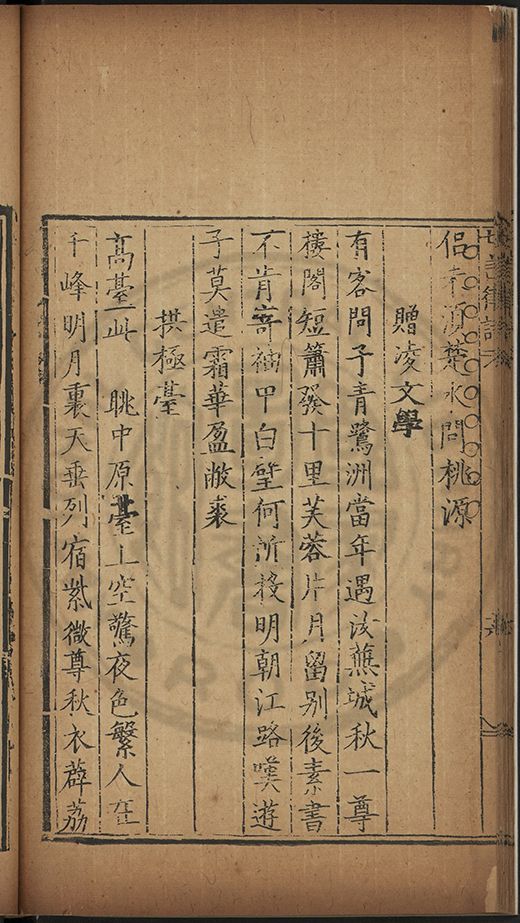 七言律詩
侶 楚水問桃源
贈凌文學
有客問予青鷺洲當年遇汝蕪城秋一尊
樓閣短簫發十里芙蓉片月留别後素書
不肯寄袖甲白璧何所投明朝江路嘆遊
子莫遣霜華盈敝裘
拱極臺
高臺此 眺中原臺上空驚夜色繁人在
千峰明月裏天垂列宿紫微尊秋衣薜荔